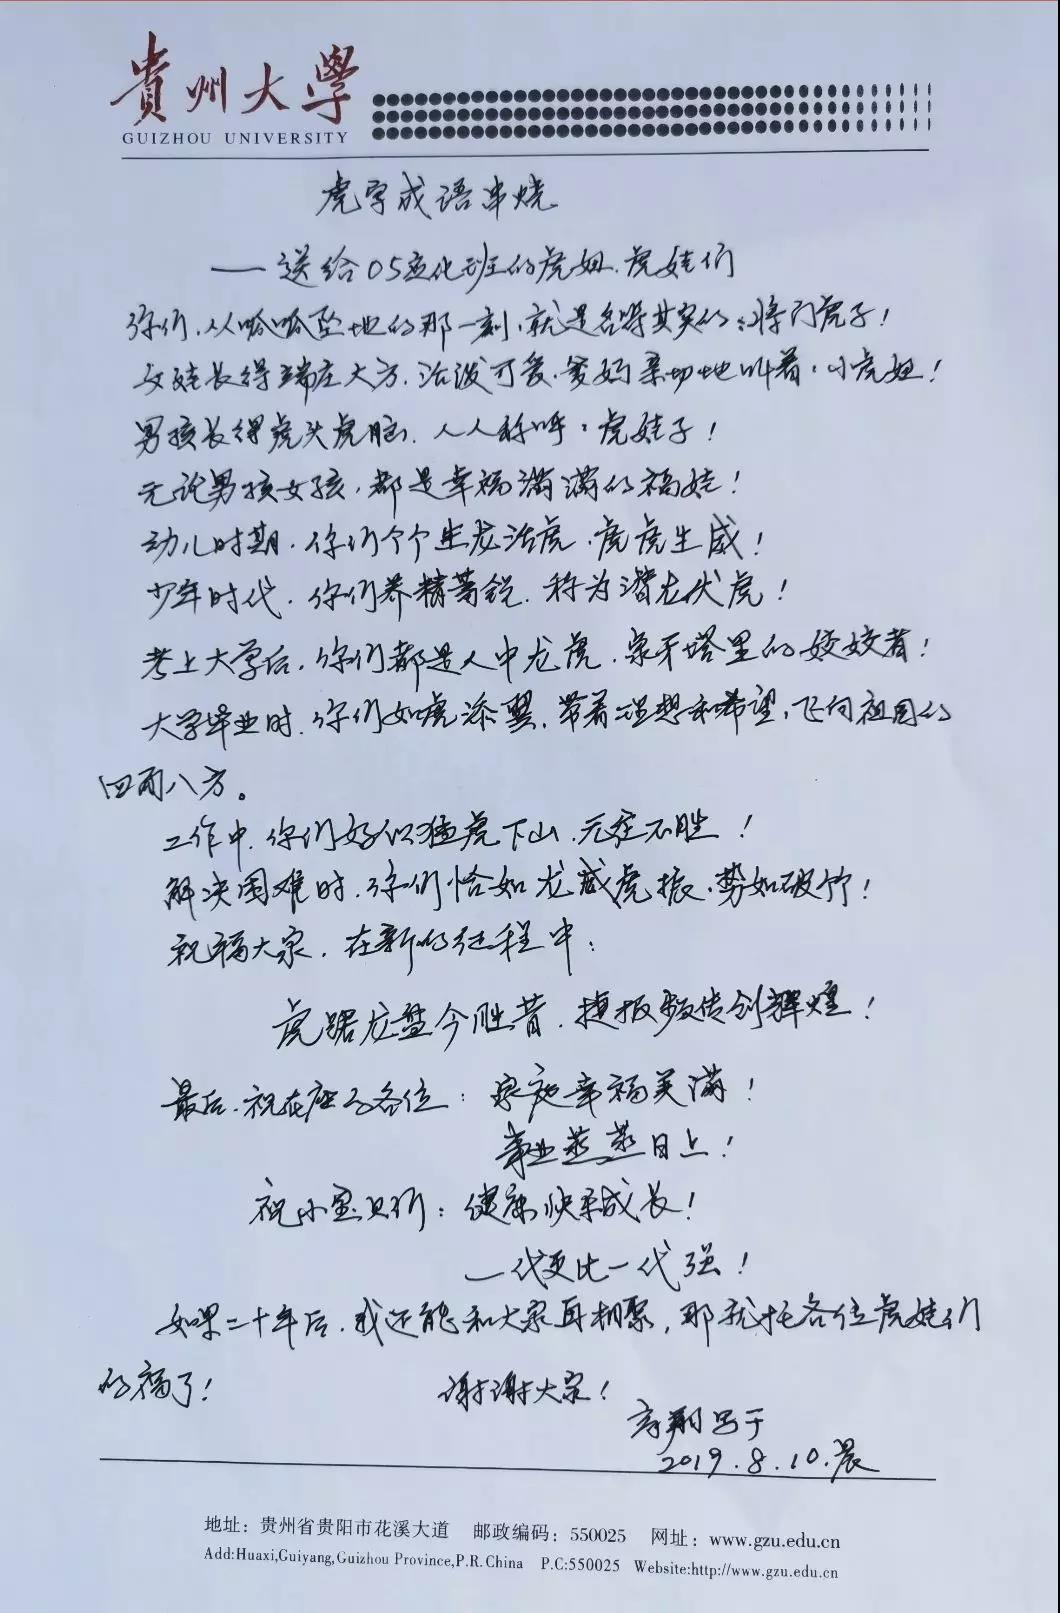 貴州大學
GUIZHOU UNIVERSITY
虎字成语串烧
——送给05应化班的虎妞、虎娃们
你们，从呱呱坠地的那一刻，就是名符其实的：将门虎子！
女娃长得端庄大方、活泼可爱，爹妈亲切地叫着：小虎妞！
男孩长得虎头虎脑，人人称呼：虎娃子！
无论男孩女孩，都是幸福满满的福娃！
幼儿时期，你们个个生龙活虎，虎虎生威！
少年时代，你们养精蓄锐，称为潜龙伏虎！
考上大学后，你们都是人中龙虎，象牙塔里的姣姣者！
大学毕业时，你们如虎添翼，带着理想和希望，飞向祖国的
四面八方。
工作中，你们好似猛虎下山，无往不胜！
解决困难时，你们恰如龙威虎振，势如破竹！
祝福大家，在新的征程中：
虎踞龙盘今胜昔，捷报频传创辉煌！
最后，祝在座的各位：家庭幸福美满！
事业蒸蒸日上！
祝小宝贝们：健康快乐成长！
一代更比一代强！
如果二十年后，我还能和大家再相聚，那就托各位虎娃们
的福了！
谢谢大家！
翔写于
2019.8.10.晨
地址：贵州省贵阳市花溪大道 邮政编码：550025 网址：www.gzu.edu.cn
Add:Huaxi,Guiyang,Guizhou Province,P.R.China P.C:550025 Website:http://www.gzu.edu.cn